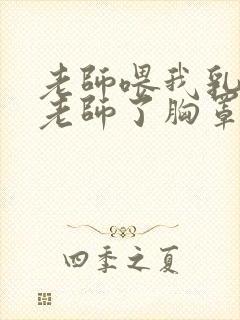 老師喂我乳
老師了胸罩
四季之夏